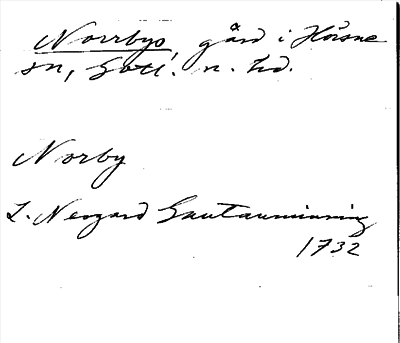 Norrbys, gård i Hörsne
sn, Gotl. n. hd.
Norby
L. Neogard Gautauminning
1732